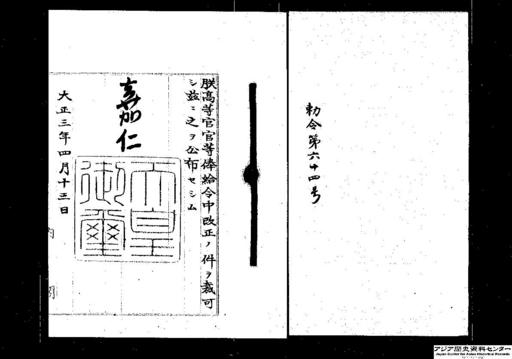 勅令第六十四号
朕高等官官等俸給令中改正ノ件ヲ裁可
シ茲ニ之ヲ公布セシム
嘉仁
天皇
御璽
大正三年四月十三日
内閣
アジア歴史資料センター
Japan Center for Asian Historical Records